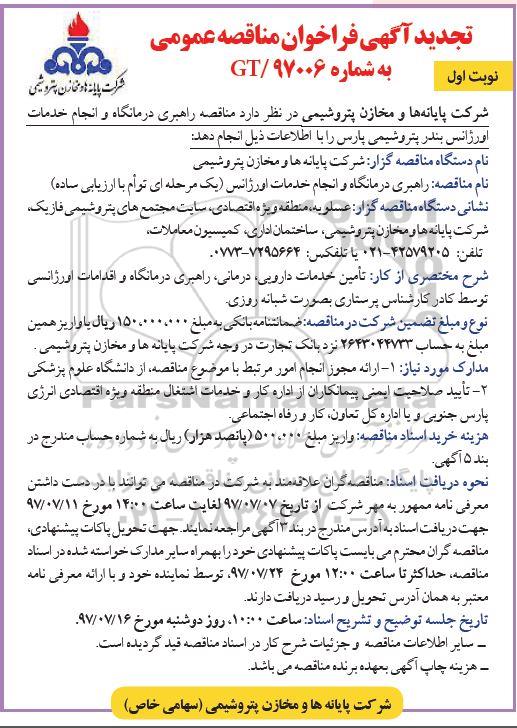 تجدید آگهی فراخوان مناقصه عمومی
به شماره GT/ ۹۷۰۰۶
نوبت اول
شرکت پایانه ها و مخازن پتروشیمی
شرکت پایانه‌ها و مخازن پتروشیمی در نظر دارد مناقصه راهبری درمانگاه و انجام خدمات
اورژانس بندر پتروشیمی پارس را با اطلاعات ذیل انجام دهد:
نام دستگاه مناقصه گزار: شرکت پایانه ها و مخازن پتروشیمی
نام مناقصه: راهبری درمانگاه و انجام خدمات اورژانس (یک مرحله ای توأم با ارزیابی ساده)
نشانی دستگاه مناقصه گزار: عسلویه، منطقه ویژه اقتصادی، سایت مجتمع های پتروشیمی فازیک،
شرکت پایانه ها و مخازن پتروشیمی، ساختمان اداری، کمیسیون معاملات،
تلفن: ۴۲۵۷۹۲۰۵-۰۲۱ یا تلفکس: ۷۲۹۵۶۶۴-۰۷۷۳.
شرح مختصری از کار: تأمین خدمات دارویی، درمانی، راهبری درمانگاه و اقدامات اورژانسی
توسط کادر کارشناس پرستاری بصورت شبانه روزی.
نوع و مبلغ تضمین شرکت در مناقصه: ضمانتنامه بانکی به مبلغ ۱۵۰،۰۰۰،۰۰۰ ریال یا واریز همین
مبلغ به حساب ۲۶۴۳۰۴۴۷۳۳ نزد بانک تجارت در وجه شرکت پایانه ها و مخازن پتروشیمی .
مدارک مورد نیاز: ۱- ارائه مجوز انجام امور مرتبط با موضوع مناقصه، از دانشگاه علوم پزشکی
۲- تأیید صلاحیت ایمنی پیمانکاران از اداره کار و خدمات اشتغال منطقه ویژه اقتصادی انرژی
پارس جنوبی و یا اداره کل تعاون، کار و رفاه اجتماعی.
هزینه خرید اسناد مناقصه: واریز مبلغ ۵۰۰،۰۰۰ (پانصد هزار) ریال به شماره حساب مندرج در
بند ۵ آگهی.
نحوه دریافت اسناد: مناقصه گران علاقه‌مند به شرکت در مناقصه می توانند با در دست داشتن
معرفی نامه ممهور به مهر شرکت از تاریخ ۹۷/۰۷/۰۷ لغایت ساعت ۱۴:۰۰ مورخ ۹۷/۰۷/۱۱
جهت دریافت اسناد به آدرس مندرج در بند ۳ آگهی مراجعه نمایند. جهت تحویل پاکات پیشنهادی،
مناقصه گران محترم می بایست پاکات پیشنهادی خود را بهمراه سایر مدارک خواسته شده در اسناد
مناقصه، حداکثر تا ساعت ۱۲:۰۰ مورخ ۹۷/۰۷/۲۴، توسط نماینده خود و با ارائه معرفی نامه
معتبر به همان آدرس تحویل و رسید دریافت دارند.
تاریخ جلسه توضیح و تشریح اسناد: ساعت ۱۰:۰۰، روز دوشنبه مورخ ۹۷/۰۷/۱۶.
ــ سایر اطلاعات مناقصه و جزئیات شرح کار در اسناد مناقصه قید گردیده است.
ــ هزینه چاپ آگهی بعهده برنده مناقصه می باشد.
شرکت پایانه ها و مخازن پتروشیمی (سهامی خاص)